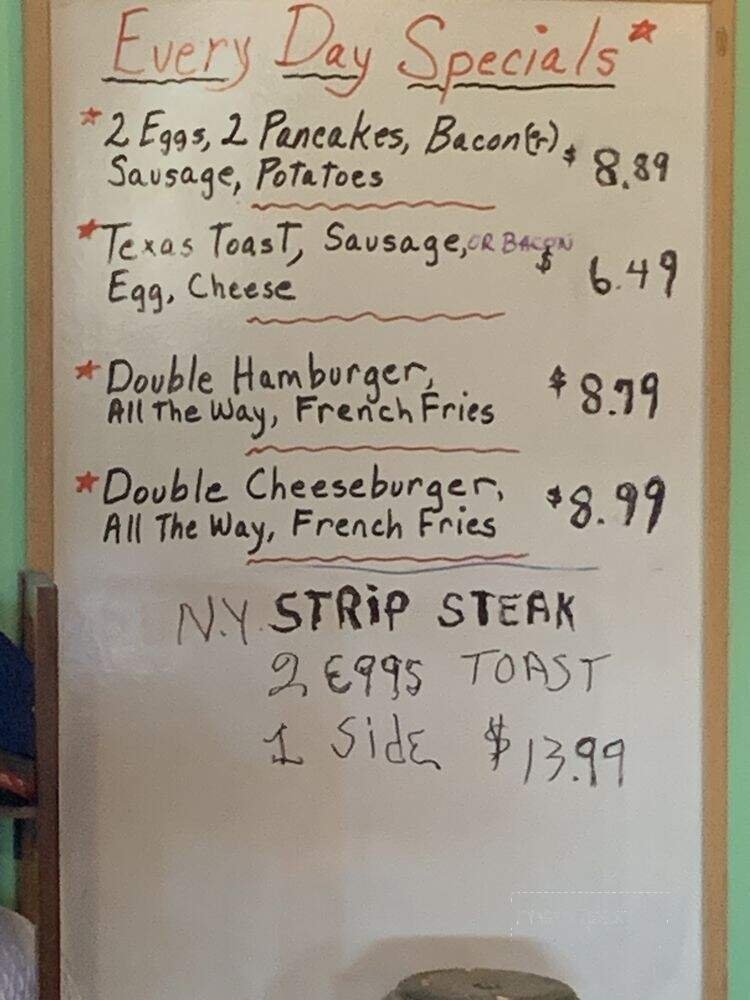 Every Day Specials*
*2 Eggs, 2 Pancakes, Bacon(or) $8.89
Sausage, Potatoes
*Texas Toast, Sausage, OR BACON $6.49
Egg, Cheese
*Double Hamburger, $8.79
All The Way, French Fries
*Double Cheeseburger, $8.99
All The Way, French Fries
N.Y. STRIP STEAK
2 Eggs TOAST
1 Side $13.99